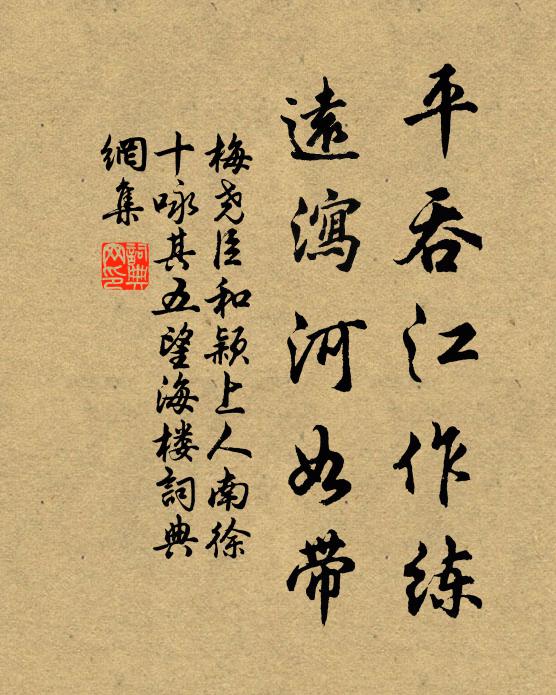 平吞江作练
遠瀉河如带
梅堯臣和颖上人南徐
十咏其五望海楼詞典
網集
詞典
网印